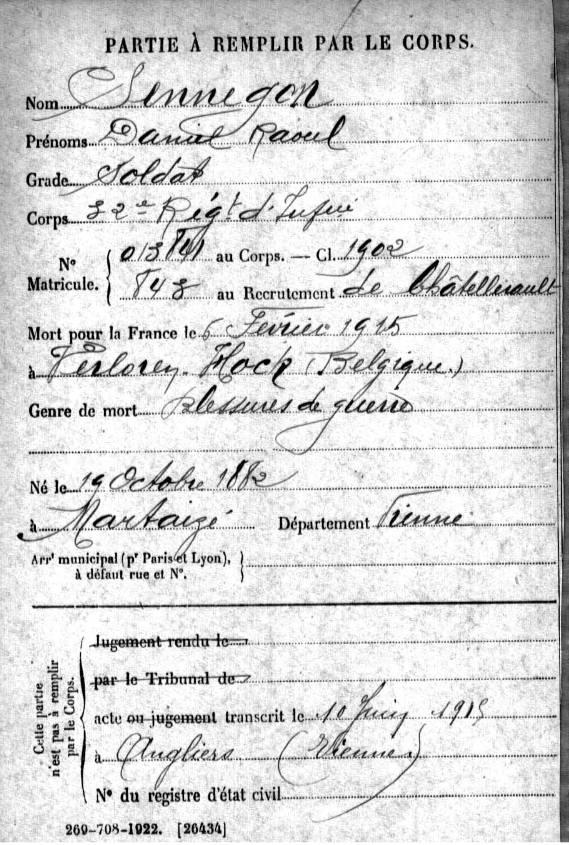 PARTIE À REMPLIR PAR LE CORPS.
Nom Sennegon
Prénoms Daniel Raoul
Grade Soldat
Corps 32e Régt d'Infie
No Matricule. { 013841 au Corps. — Cl. 1902
843 au Recrutement de Châtellerault
Mort pour la France le 6 Février 1915
à Verlorenhock (Belgique.)
Genre de mort blessures de guerre
Né le 19 Octobre 1882
à Martaizé Département Vienne
Arrt municipal (pr Paris et Lyon), à défaut rue et No. }
Cette partie n'est pas à remplir par le Corps.
Jugement rendu le
par le Tribunal de
acte ou jugement transcrit le 10 Juin 1915
à Angliers (Vienne)
No du registre d'état civil
269-708-1922. [26434]